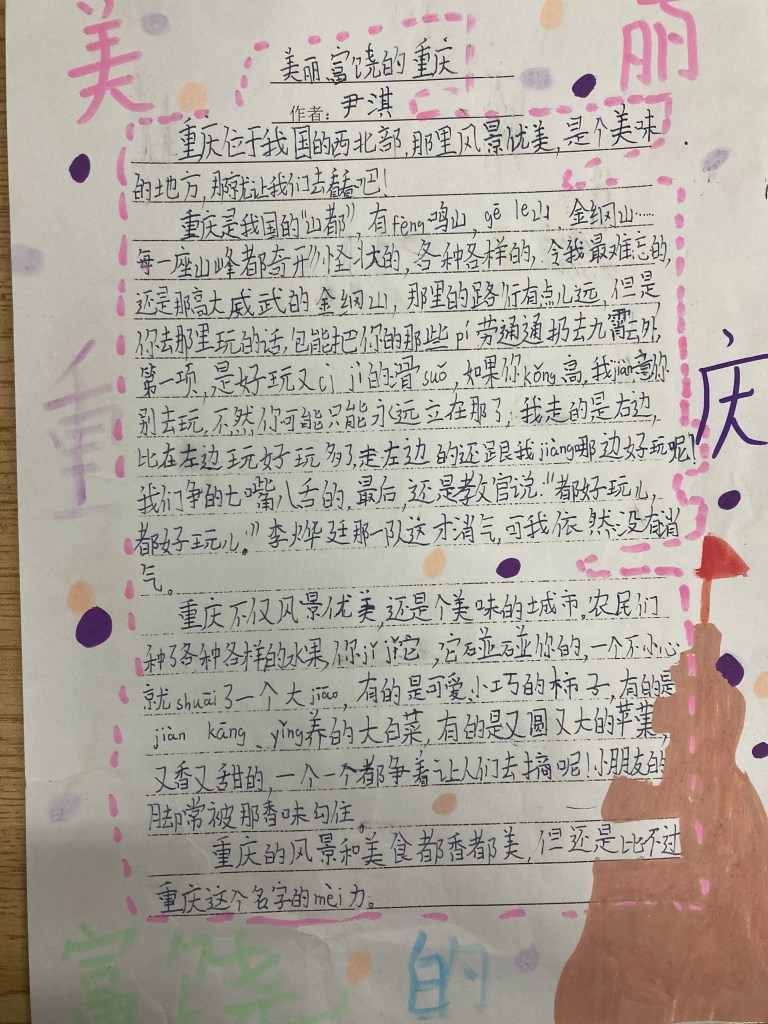 美 丽
美丽富饶的重庆
作者：尹淇
重庆位于我国的西北部，那里风景优美，是个美味
的地方，那就让我们去看看吧！
重庆是我国的“山都”，有fēng鸣山，gē le山、金纲山……
每一座山峰都奇形怪状的，各种各样的，令我最难忘的，
还是那高大威武的金纲山，那里的路行有点儿远，但是
你去那里玩的话，包能把你的那些pí劳通通扔去九霄云外，
第一项，是好玩又cì jī的滑suǒ，如果你kǒng高，我jiàn意你
别去玩，不然你可能只能永远立在那了，我走的是右边，
比在左边玩好玩多了，走左边的还跟我jiāng哪边好玩呢？
我们争的七嘴八舌的，最后，还是教官说：“都好玩儿，
都好玩儿。”李烨廷那一队这才消气，可我依然没有消
气。
重庆不仅风景优美，还是个美味的城市，农民们
种了各种各样的水果，你jǐ jǐ它，它碰碰你的，一个不小心
就shuāi了一个大jiāo，有的是可爱、小巧的柿子，有的是
jiàn kāng、yíng养的大白菜，有的是又圆又大的苹菓，
又香又甜的，一个一个都争着让人们去摘呢！小朋友的
脚常被那香味勾住。
重庆的风景和美食都香都美，但还是比不过
重庆这个名字的mèi力。
重 庆
富饶 的